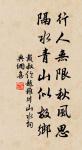 行人無限秋風思
隔水青山似故鄉
戴叔倫題稚川山水詞
典網集